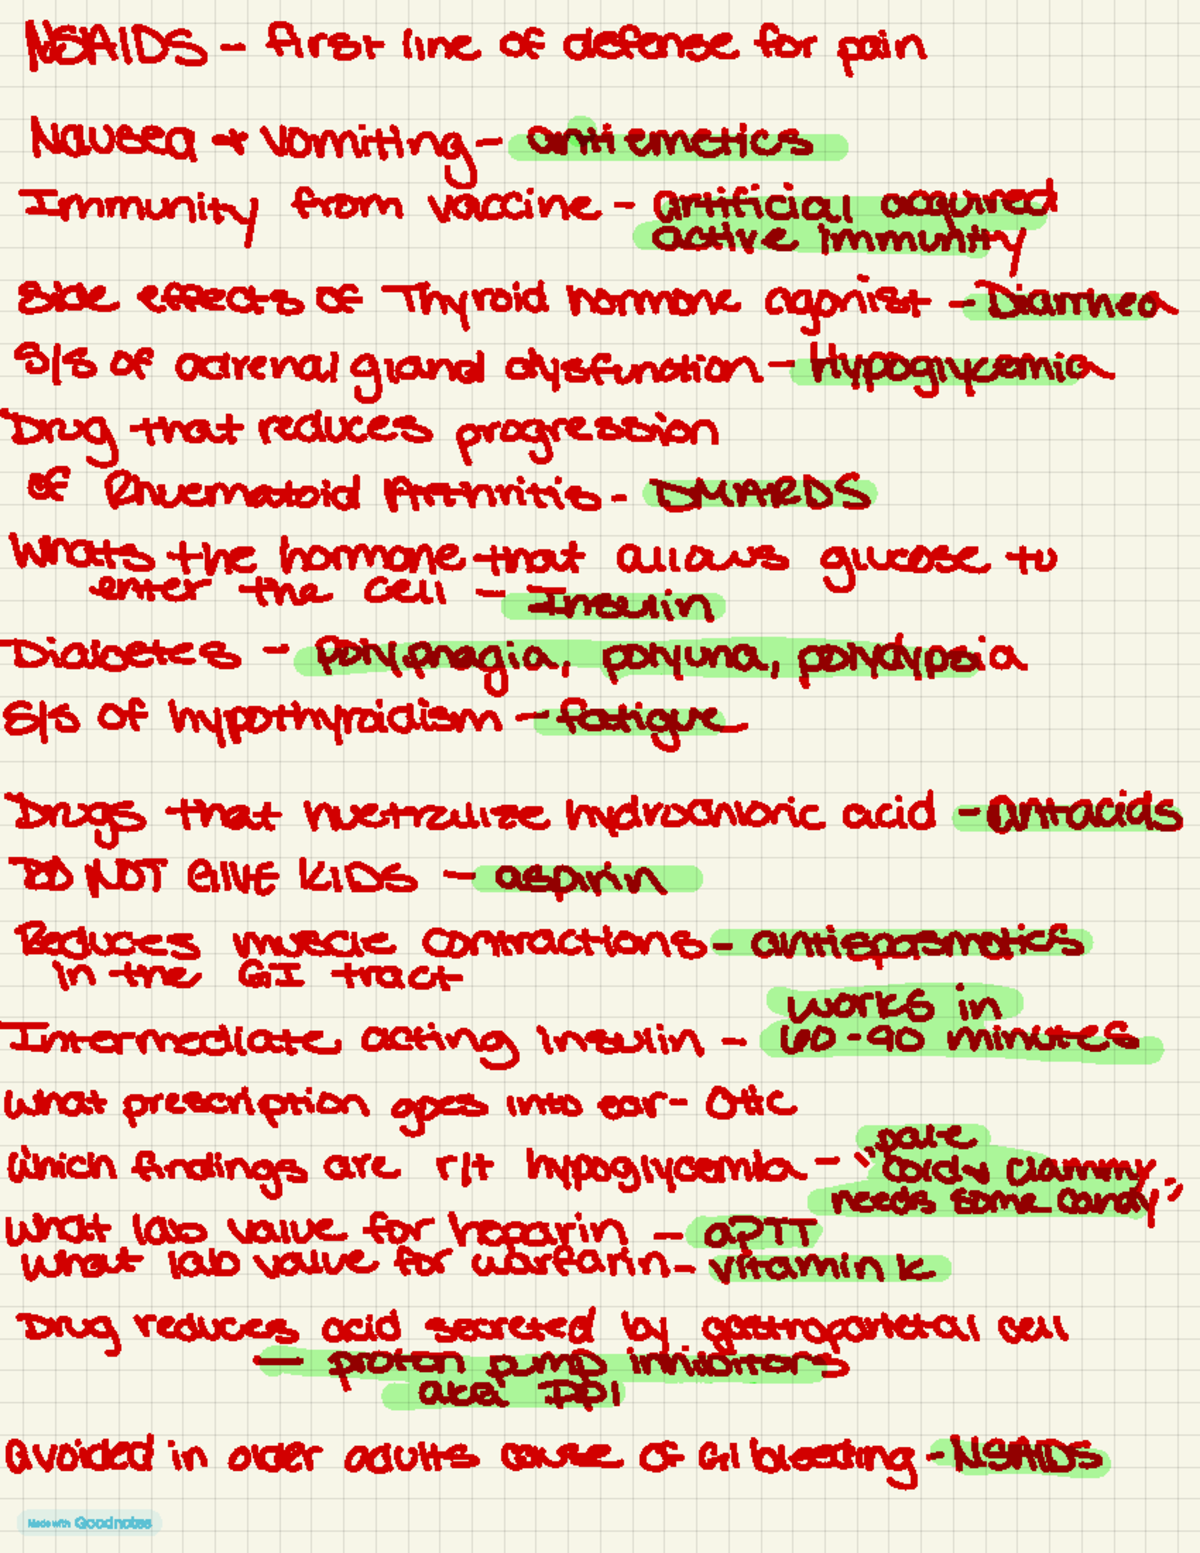 NSAIDS - first line of defense for pain
Nausea + vomiting - antiemetics
Immunity from vaccine - artificial acquired
active immunity
Side effects of Thyroid hormone agonist - Diarrhea
S/S of adrenal gland dysfunction - Hypoglycemia
Drug that reduces progression
of Rhuematoid Arthritis - DMARDS
Whats the hormone that allows glucose to
enter the cell - Insulin
Diabetes - polyphagia, polyuria, polydypsia
S/S of hypothyroidism - fatigue
Drugs that nuetralize hydrochloric acid - antacids
DO NOT GIVE KIDS - aspirin
Reduces muscle contractions - antispasmotics
in the GI tract
works in
Intermediate acting insulin - 60-90 minutes
What prescription goes into ear - Otic
pale
Which findings are r/t hypoglycemia - "cold & clammy
needs some candy"
What lab value for heparin - aPTT
What lab value for warfarin - vitamin k
Drug reduces acid secreted by gastroparietal cell
- proton pump inhibitors
aka PPI
avoided in older adults cause of GI bleeding - NSAIDS
Made with Goodnotes